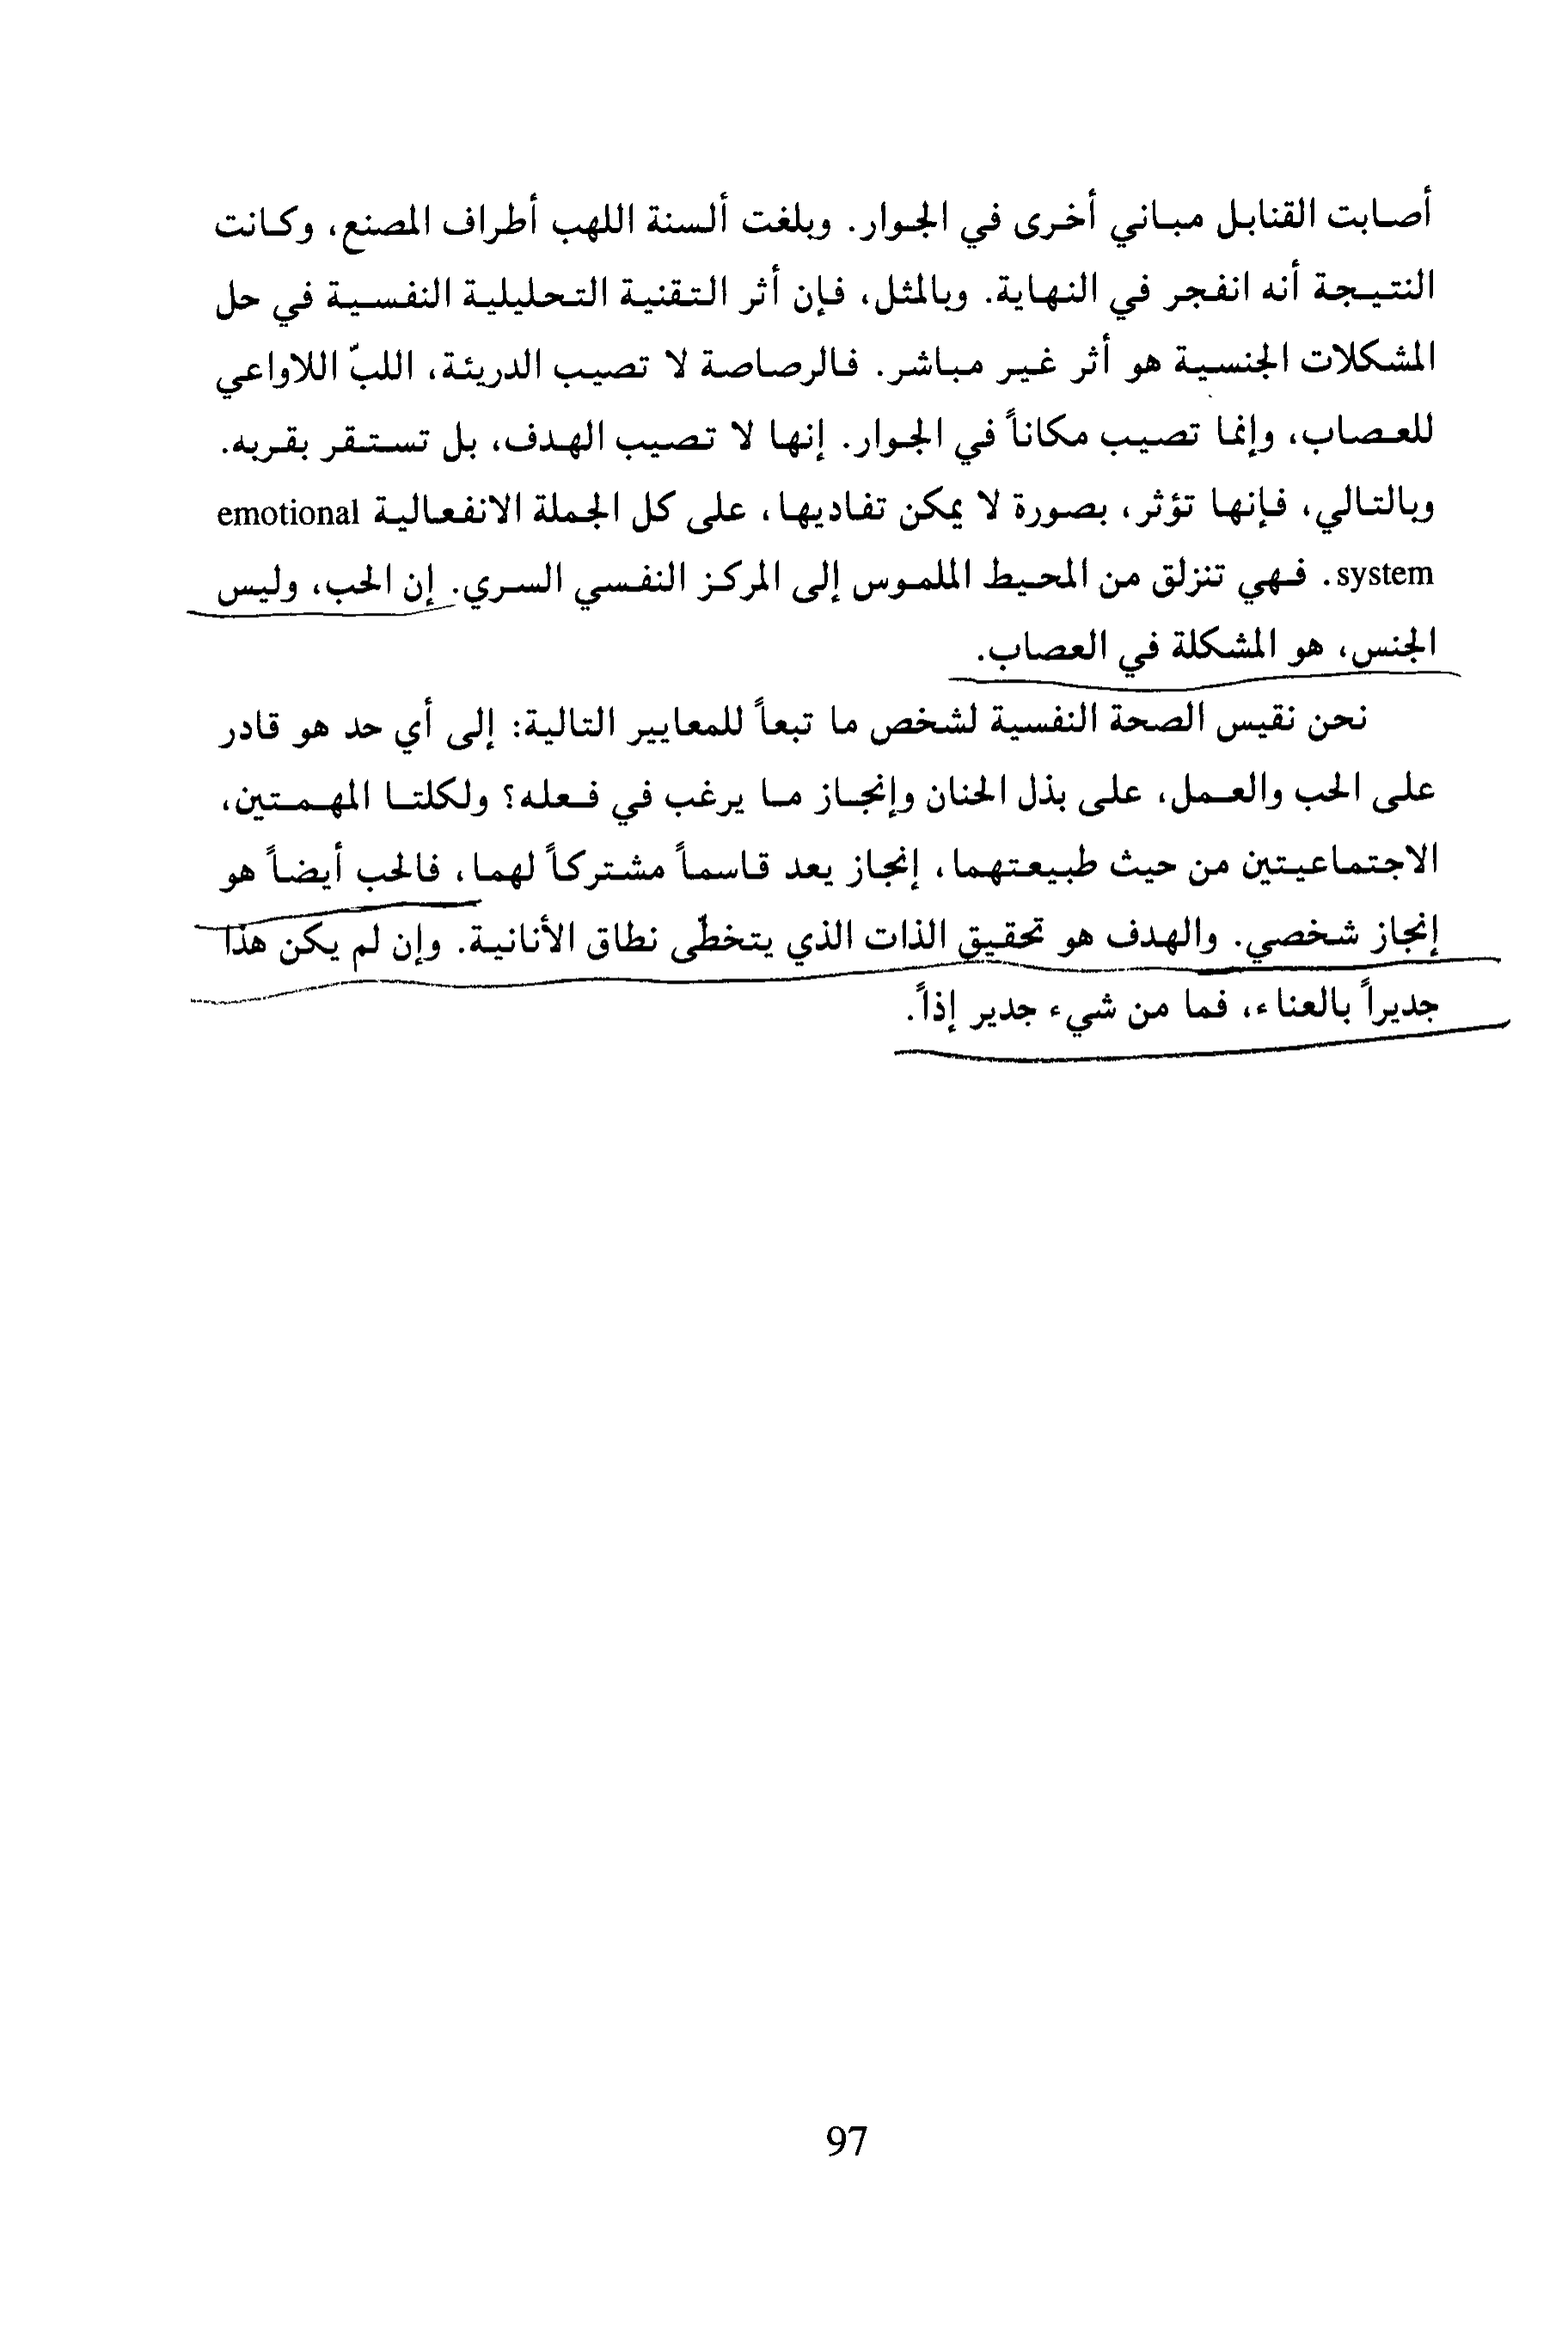 أصابت القنابل مباني أخرى في الجوار. وبلغت ألسنة اللهب أطراف المصنع، وكانت
النتيجة أنه انفجر في النهاية. وبالمثل، فإن أثر التقنية التحليلية النفسية في حل
المشكلات الجنسية هو أثر غير مباشر. فالرصاصة لا تصيب الدريئة، اللبّ اللاواعي
للعصاب، وإنما تصيب مكاناً في الجوار. إنها لا تصيب الهدف، بل تستقر بقربه.
وبالتالي، فإنها تؤثر، بصورة لا يمكن تفاديها، على كل الجملة الانفعالية emotional
system. فهي تنزلق من المحيط الملموس إلى المركز النفسي السري. إن الحب، وليس
الجنس، هو المشكلة في العصاب.
نحن نقيس الصحة النفسية لشخص ما تبعاً للمعايير التالية: إلى أي حد هو قادر
على الحب والعمل، على بذل الحنان وإنجاز ما يرغب في فعله؟ ولكلتا المهمتين،
الاجتماعيتين من حيث طبيعتهما، إنجاز يعد قاسماً مشتركاً لهما، فالحب أيضاً هو
إنجاز شخصي. والهدف هو تحقيق الذات الذي يتخطّى نطاق الأنانية. وإن لم يكن هذا
جديراً بالعناء، فما من شيء جدير إذاً.
97